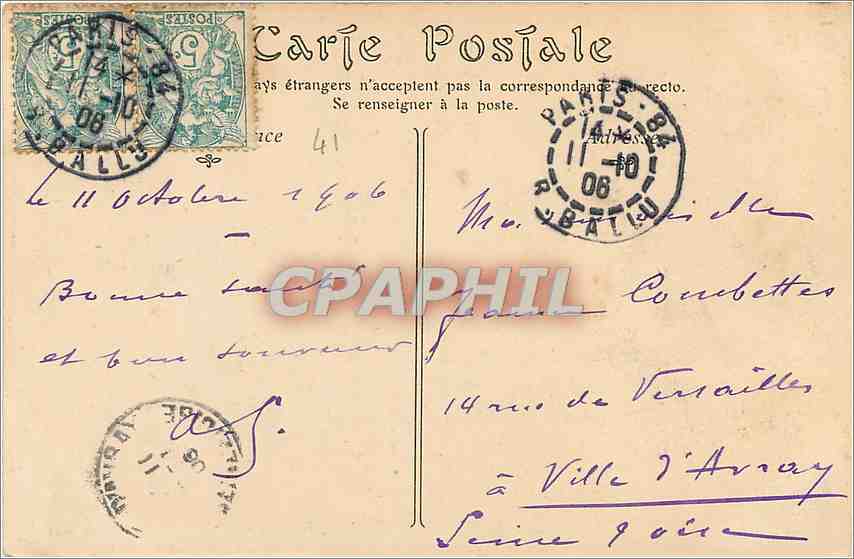 Carte Postale
ays étrangers n'acceptent pas la correspondance au recto.
Se renseigner à la poste.
POSTES
5
POSTES
5
PARIS - 84
14 X
11 - 10
06
R. BALLU
41
Adresse
PARIS - 84
14 X
11 - 10
06
R. BALLU
Le 11 Octobre 1906
Bonne santé
et bon souvenir
a S.
Mademoiselle
Jeanne Combettes
14 rue de Versailles
à Ville d'Avray
Seine & Oise
CPAPHIL